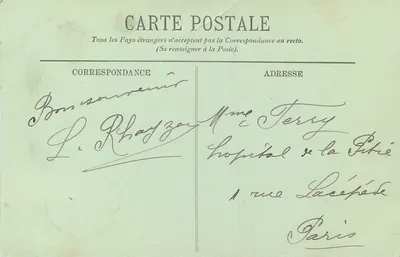 CARTE POSTALE
Tous les Pays étrangers n'acceptent pas la Correspondance au recto.
(Se renseigner à la Poste).
CORRESPONDANCE
Bon souvenir
L.
ADRESSE
Mme Terry
hopital de la Pitié
1 rue Lacépède
Paris